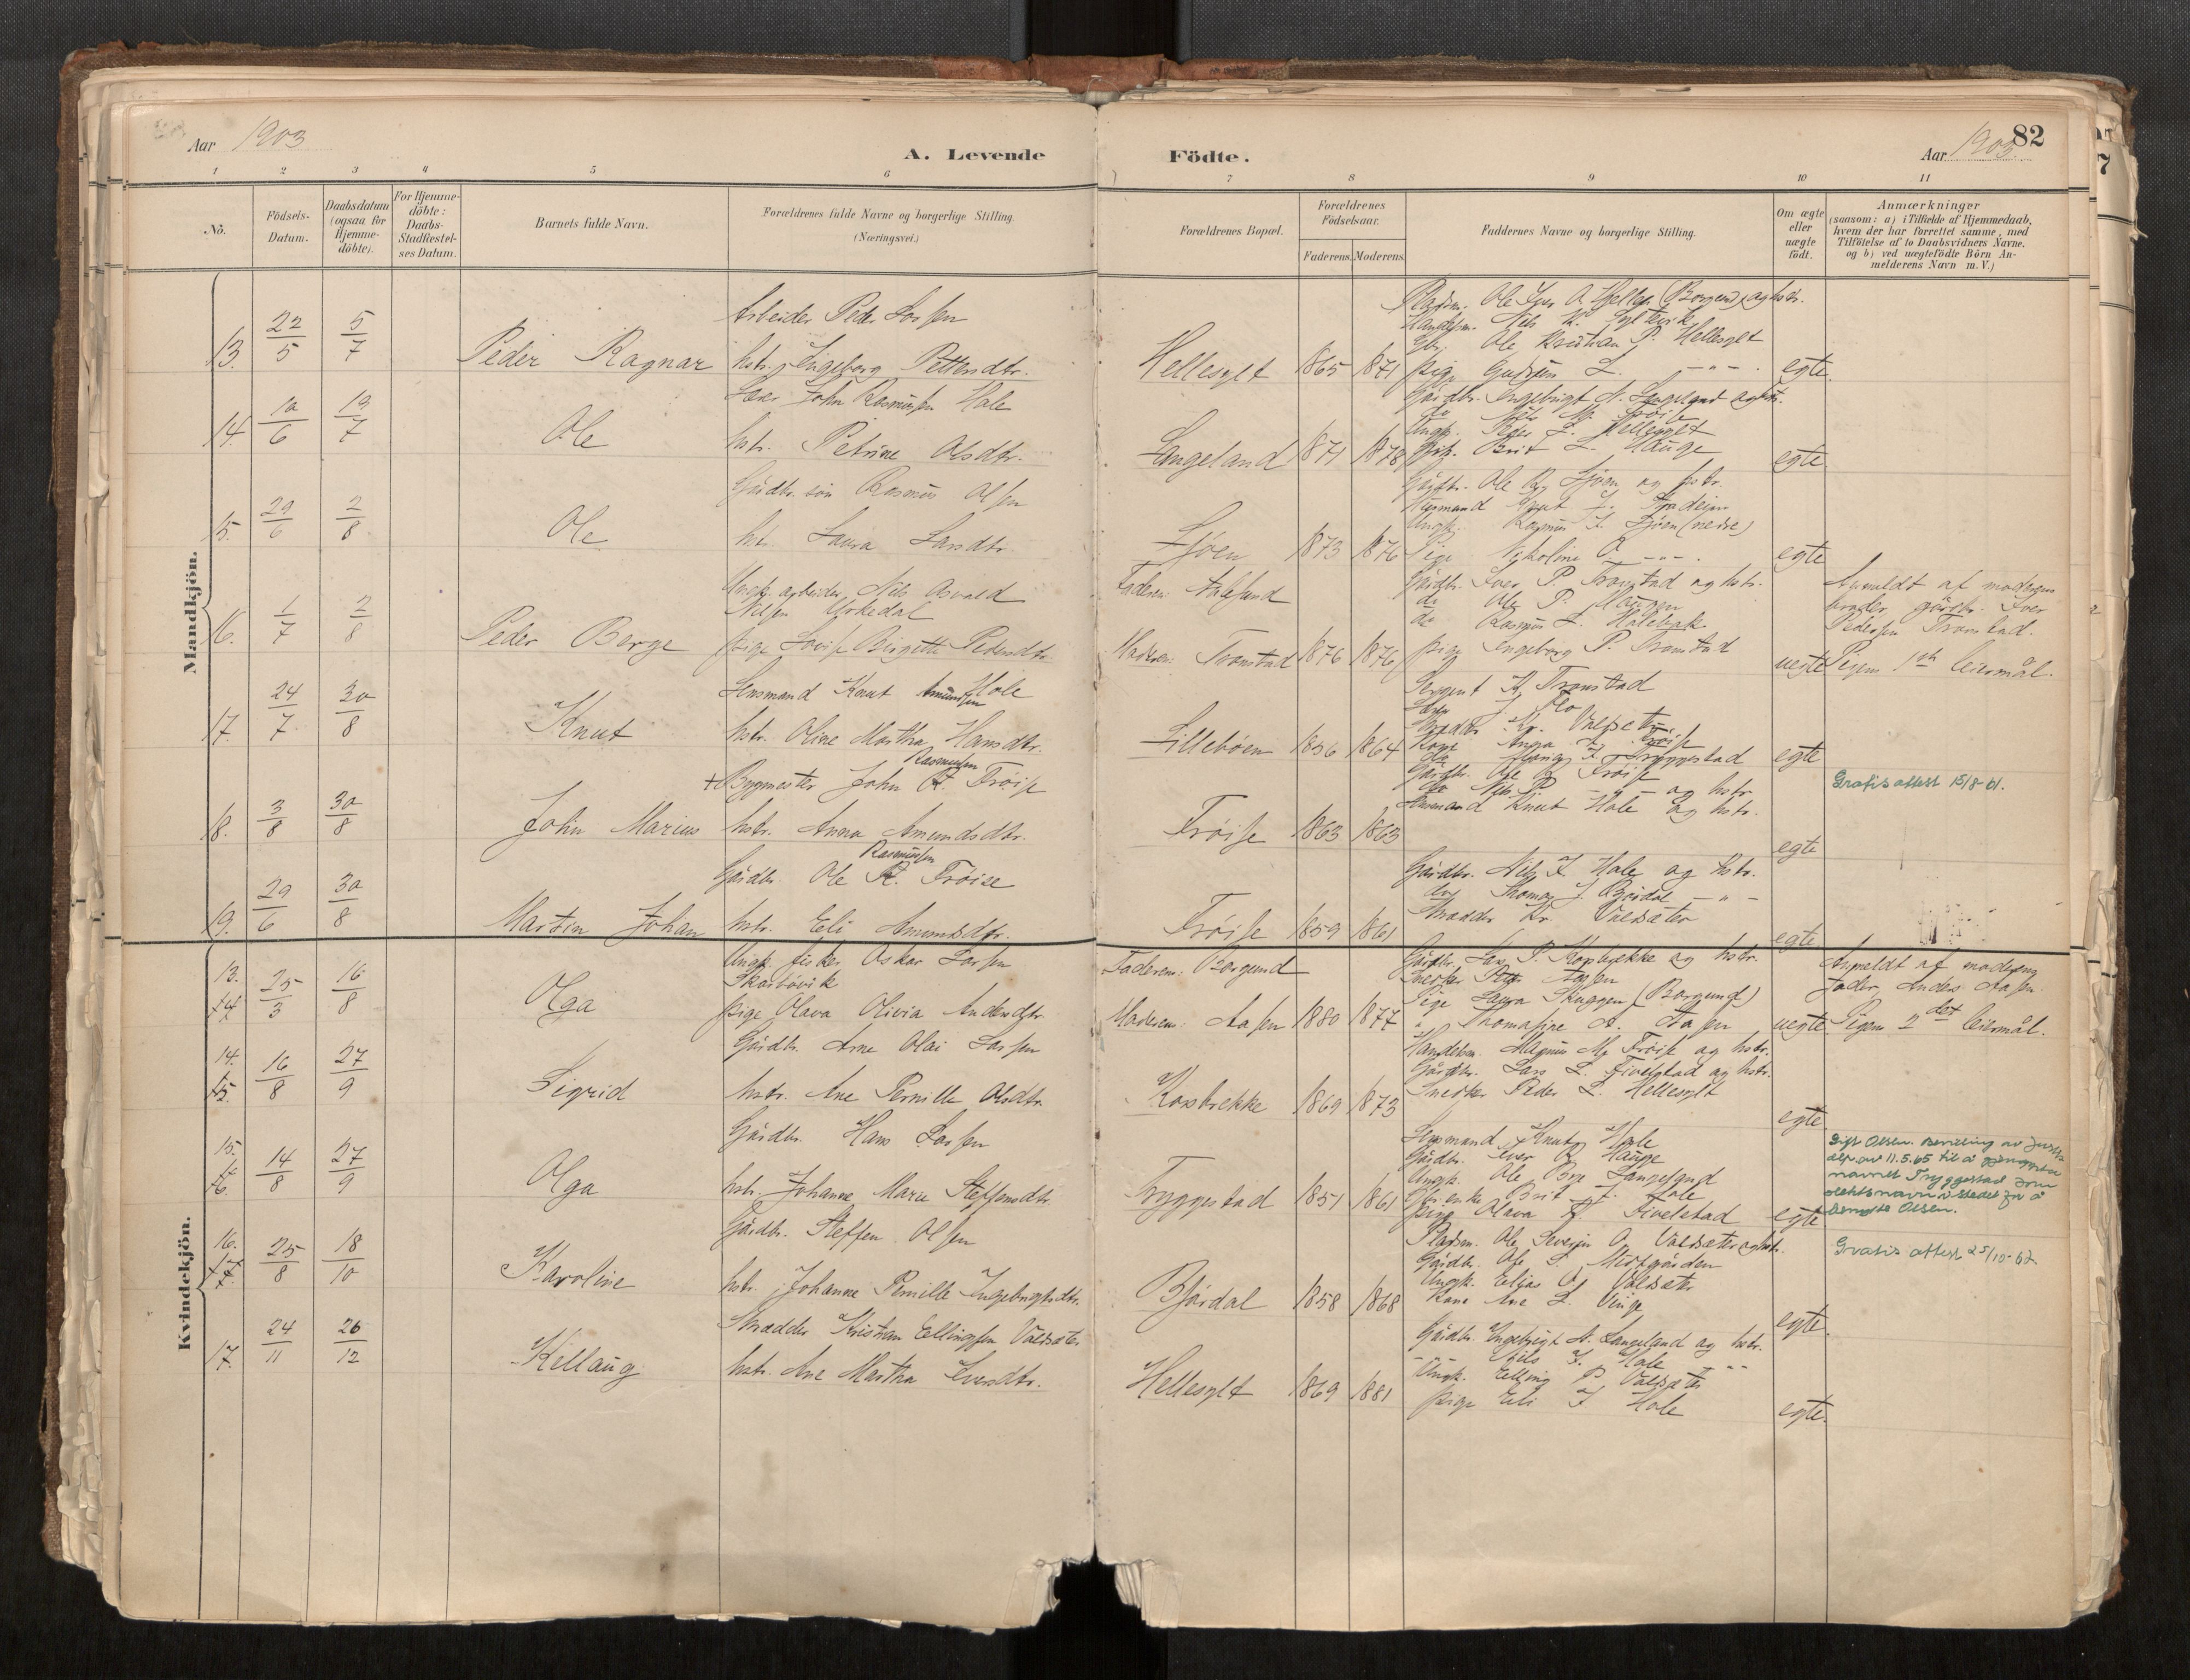 Aar 1903
A. Levende
Födte.
Aar 1903.
82
1 2 3 4 5 6 7 8 9 10 11
No.
Födsels-
Datum.
Daabsdatum
(ogsaa for
Hjemme-
döbte).
For Hjemme-
döbte:
Daabs-
Stadfæstel-
ses Datum.
Barnets fulde Navn.
Forældrenes fulde Navne og borgerlige Stilling.
(Næringsvei.)
Forældrenes Bopæl.
Forældrenes
Födselsaar.
Faderens. Moderens.
Faddernes Navne og borgerlige Stilling.
Om ægte
eller
uægte
födt.
Anmærkninger
(saasom: a) i Tilfælde af Hjemmedaab,
hvem der har forrettet samme, med
Tilföielse af to Daabsvidners Navne,
og b) ved uægtefödte Börn An-
melderens Navn m. V.)
Mandkjön.
13. 22/5 5/7 Peder Ragnar
Arbeider Peder Larsen
hstr. Ingeborg Pettersdtr.
Hellesylt 1865 1871
Ole Kristian P. Hellesylt
egte.
14. 10/6 19/7 Ole
John Rasmussen Hole
hstr. Petrine Olsdtr.
Langeland 1871 1878
Gårdbr. Ingebrigt N. Langeland og hstr.
Brit L. Hauge
egte
15. 29/6 2/8 Ole
Gårdbr. søn Rasmus Olsen
hstr. Laura Larsdtr.
Ljøen 1873 1876
Gårdbr. Ole R. Ljøen og hstr.
Ljøen (nedre)
Pige Nikoline O. -"-
egte
16. 1/7 2/8 Peder Berge
Ungk. arbeider Nils Osvald
Nilsen Urkedal
pige Lovise Birgitte Pedersdtr.
Faderen: Aalesund
Moderen: Tronstad 1876 1876
Gårdbr. Iver P. Tronstad og hstr.
do Ole P. Haugen
do Rasmus L. Holebak.
pige Ingeborg P. Tronstad
uegte
Anmeldt af moderens
broder, gårdbr. Iver
Pedersen Tronstad.
Pigens 1ste leiermål.
17. 24/7 30/8 Knut
Lensmand Knut Amundsen Hole
hstr. Oline Martha Hansdtr.
Lillebøen 1856 1864
Sergent K. Tronstad
Skrædder Kr. Valseter
egte
18. 3/8 30/8 John Marius
+ Bygmester John R. Rasmussen Frøise
hstr. Anna Amundsdtr.
Frøise 1863 1863
Gårdbr. Ole R. Frøise
do Nils P. -"- og hstr.
Lensmand Knut Hole og hstr.
egte
Gratis attest 15/8-61.
19. 29/6 30/8 Martin Johan
Gårdbr. Ole R. Rasmussen Frøise
hstr. Eli Amundsdtr.
Frøise 1859 1861
Gårdbr. Nils J. Hole og hstr.
do Thomas J. Bjørdal -"-
Skrædder Kr. Valdsæter
egte
Kvindekjön.
13. 14. 25/3 16/8 Olga
Ungk. fisker Oskar Larsen
Skarbøvik
pige Olava Olivia Andersdtr.
Faderen: Borgund
Moderen: Aasen 1880 1877
Gårdbr. Lars P. Kopbrække og hstr.
Snedker Petter Aasen
Pige Laura Skuggen (Borgund)
" Thomasine A. Aasen
uegte
Anmeldt af moderens
fader, Anders Aasen.
Pigens 2det leiermål.
14. 15. 16/8 27/9 Sigrid
Gårdbr. Arne Olai Larsen
hstr. Ane Pernille Olsdtr.
Kopbrekke 1869 1873
Handelsm. Magnus M. Frøise og hstr.
Gårdbr. Lars L. Fivelstad og hstr.
Snedker Peder L. Hellesylt
egte
15. 16. 14/8 27/9 Olga
Gårdbr. Hans Larsen
hstr. Johanne Marie Steffensdtr.
Tryggestad 1851 1861
Lensmand Knut Hole
Gårdbr. Iver R. Hauge
Ungk. Ole Bye Langeland
Gbr.enke Brit J. Hole
pige Olava K. Fivelstad
egte
Gift Olsen. Bevilling av Justis
dep. av 11.5.65 til å gjenoppta
navnet Tryggestad som
slektsnavn i stedet for å
benytte Olsen.
16. 17. 25/8 18/10 Karoline
Gårdbr. Steffen Olsen
hstr. Johanne Pernille Ingebrigtsdtr.
Bjørdal 1858 1868
Pladsm. Ole Severin O. Valdsæter og hstr.
Gårdbr. Ole S. Midtgården
Ungk. Elias O. Valdsæter
Kone Ane L. Vinje
egte.
Gratis attest 25/10-67
17. 24/11 26/12 Kellaug
Skrædder Kristian Ellingsen Valdsæter
hstr. Ane Martha Iversdtr.
Hellesylt 1869 1881
Gårdbr. Ingebrigt N. Langeland og hstr.
-"- Nils J. Hole -"-
Ungk. Elling P. Valdsæter
pige Eli J. Hole
egte.